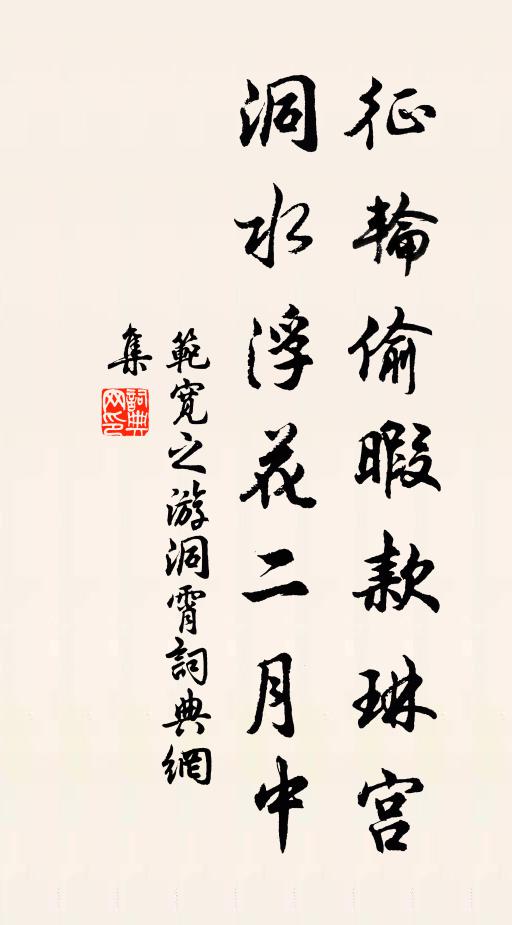 征輪偷暇款琳宮
洞水浮花二月中
範寬之游洞霄詞典網
集
詞典網印